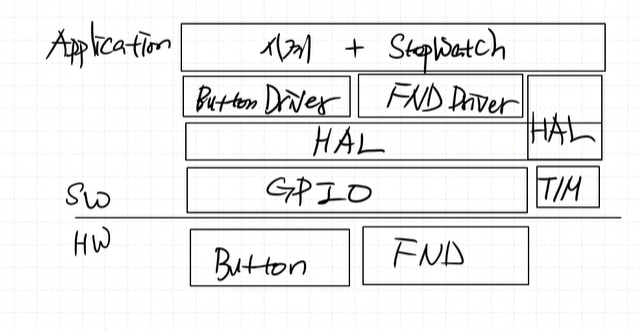 Application 시계 + StopWatch
Button Driver FND Driver
HAL HAL
SW GPIO TIM
HW Button FND